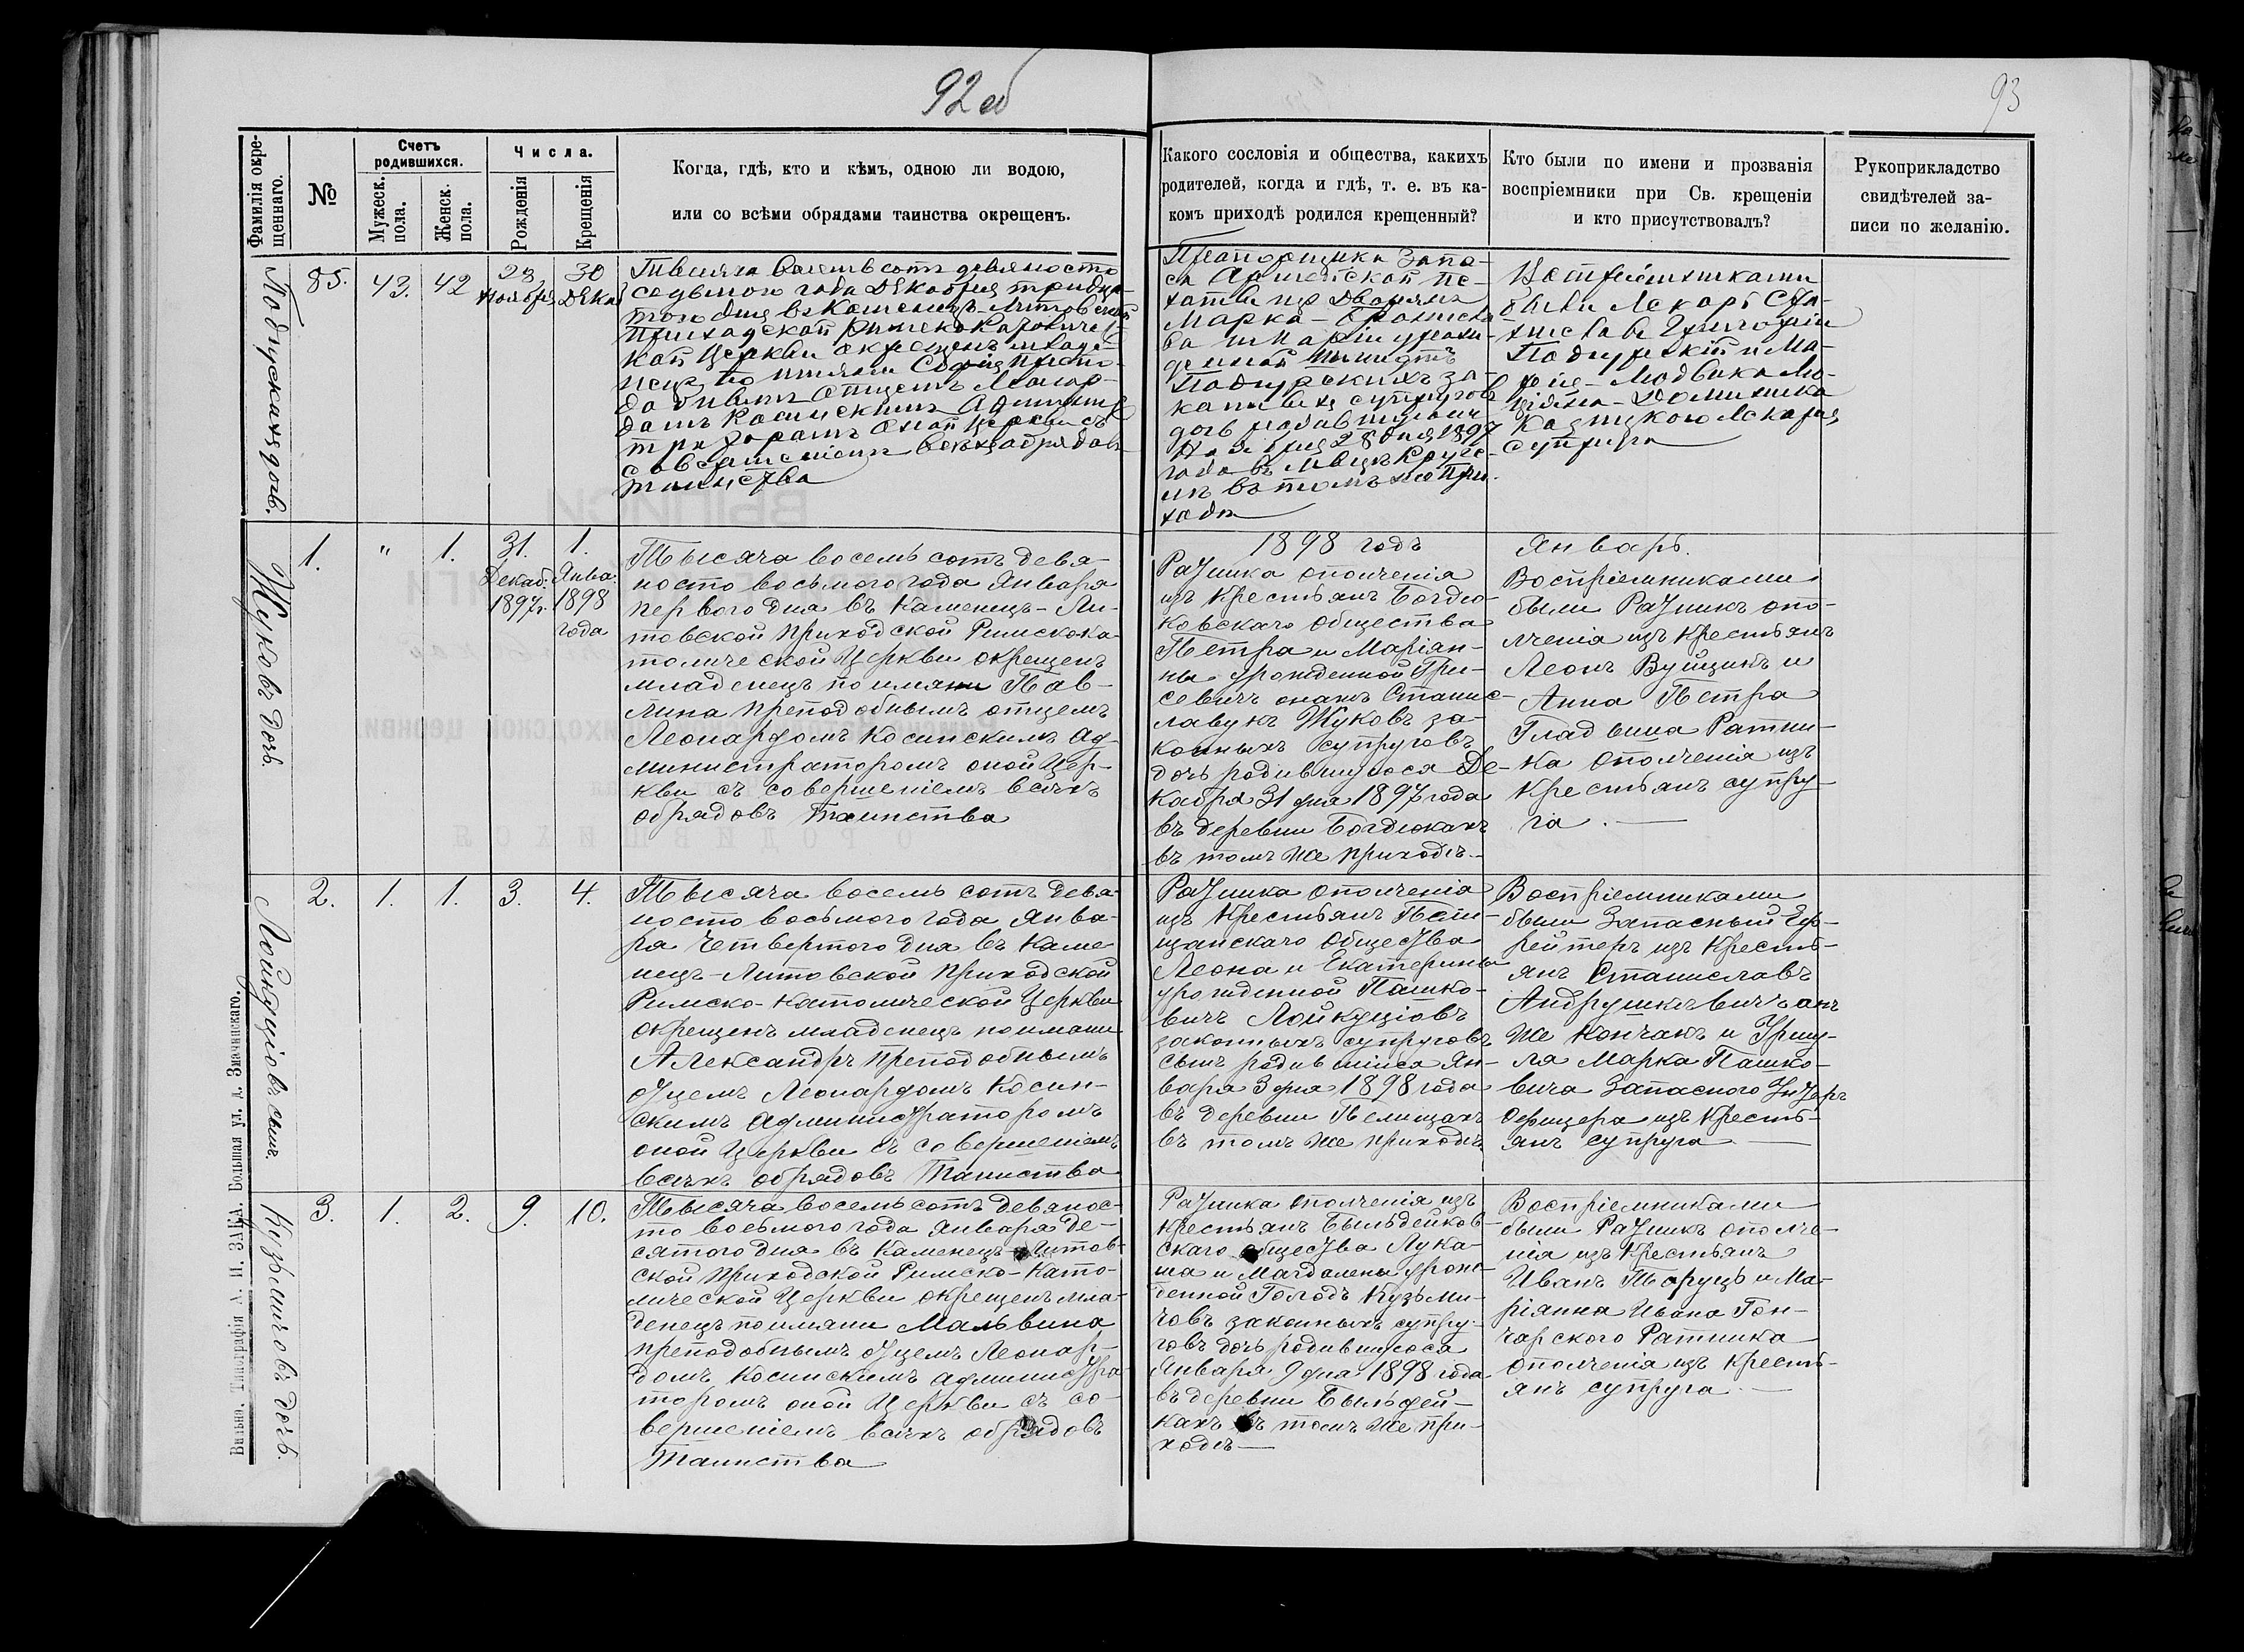 92 об
93
Фамилія окре-
щеннаго.
№
Счетъ
родившихся.
Мужеск.
пола.
Женск.
пола.
Числа.
Рожденія
Крещенія
Когда, гдѣ, кто и кѣмъ, одною ли водою,
или со всѣми обрядами таинства окрещенъ.
Какого сословія и общества, какихъ
родителей, когда и гдѣ, т. е. въ ка-
комъ приходѣ родился крещенный?
Кто были по имени и прозванія
воспріемники при Св. крещеніи
и кто присутствовалъ?
Рукоприкладство
свидѣтелей за-
писи по желанію.
дочь.
85.
43.
42
28
Ноября
30
Дека
Тысяча восемьсотъ девяносто
седьмого года Декабря тридца-
того дня въ Каменецъ-Литовской
Приходской Римско Католичес-
кой Церкви окрещенъ младе-
нецъ по имени Софія препо-
добнымъ Отцемъ Леонар-
домъ Косинскимъ Админис
траторомъ оной Церкви съ
совершеніемъ всѣхъ обрядовъ
таинства
Прапорщика Запа-
са Армейской Пе-
хоты изъ Дворянъ
Марка-Бронисла-
ва и Маріи урож-
денной
за-
конныхъ супруговъ
дочь родившуюся
Ноября 28 дня 1897
года въ
въ томъ же При-
ходѣ
Воспріемниками
были Лекарь Ста-
ниславъ Григорій
и Ма-
рія-Людвика
Доминика
Лекаря
супруга
Жуковъ дочь.
1.
"
1.
31.
Декаб.
1897г.
1.
Янва.
1898
года
Тысяча восемь сотъ девя-
носто восьмого года Января
перваго дня въ Каменецъ-Ли-
товской приходской Римскока-
толической Церкви окрещенъ
младенецъ по имяни Пав-
лина преподобнымъ отцемъ
Леонардомъ Косинскимъ Ад-
министраторомъ оной Цер-
кви съ совершеніемъ всѣхъ
обрядовъ Таинства
1898 годъ
Ратника ополченія
изъ крестьянъ Богдю-
ковскаго общества
Петра и Маріян-
ны урожденной Гри-
севичъ онажъ Станис-
лавукъ Жуковъ за-
конныхъ супруговъ
дочь родившуюся Де-
кабря 31 дня 1897 года
въ деревни Богдюкахъ
въ томъ же приходѣ.
Январь.
Воспріемниками
были Ратникъ опо-
лченія изъ крестьянъ
Леонъ Вуйцикъ и
Анна Петра
Гладыша Ратни-
ка ополченія изъ
крестьянъ супру-
га.
Лойкуціовъ сынъ.
2.
1.
1.
3.
4.
Тысяча восемь сотъ девя-
носто восьмого года Янва-
ря четвертого дня въ Каме
нецъ-Литовской приходской
Римско-Католической Церкви
окрещенъ младенецъ по имяни
Александръ преподобнымъ
Отцемъ Леонардомъ Косин-
скимъ Администраторомъ
оной Церкви съ совершеніемъ
всѣхъ обрядовъ Таинства
Ратника ополченія
изъ крестьянъ Пели-
щанскаго Общества
Леона и Екатерины
урожденной Пашко-
вичъ Лойкуціовъ
законныхъ супруговъ
сынъ родившійся Ян-
варя 3 дня 1898 года
въ деревни Пелищахъ
въ томъ же приходѣ.
Воспріемниками
были Запасный Еф-
рейтеръ изъ кресть-
янъ Станиславъ
Андрушкѣвичъ онъ
же Кончакъ и Уршу-
ля Марка Пашко-
вича Запасного Унтеръ
Офицера изъ кресть-
янъ супруга
Кузмичовъ дочь.
3.
1.
2.
9.
10.
Тысяча восемь сотъ девянос-
то восьмого года Января де-
сятого дня въ Каменецъ-Литов-
ской приходской Римско-Като-
лической Церкви окрещенъ мла-
денецъ по имяни Мальвина
преподобнымъ отцемъ Леонар-
домъ Косинскимъ Администра
торомъ оной Церкви съ со-
вершеніемъ всѣхъ обрядовъ
Таинства
Ратника ополченія изъ
крестьянъ Быльдейков-
скаго общества Лука-
ша и Магдалены урож-
денной Голодъ Кузьми-
човъ законныхъ супру-
говъ дочь родившуюся
Января 9 дня 1898 года
въ деревни Быльдей-
кахъ въ томъ же при-
ходѣ
Воспріемниками
были Ратникъ ополче-
нія изъ крестьянъ
Иванъ Теруцъ и Ма-
ріянна Ивана Гон-
чарского Ратника
ополченія изъ кресть-
янъ супруга.
Вильно. Типографія А. И. ЗАКА. Большая ул. д. Значинскаго.